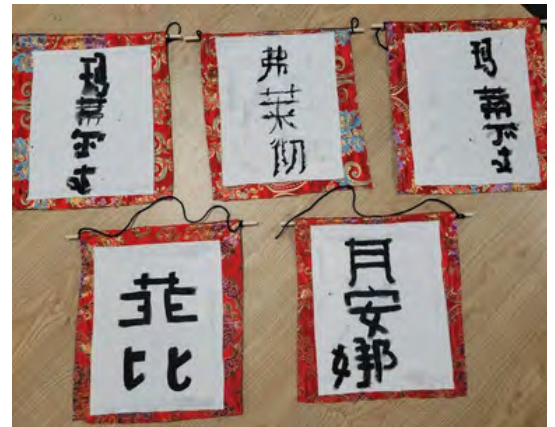 玛蒂尔达
弗莱彻
玛蒂尔达
菲比
月安娜